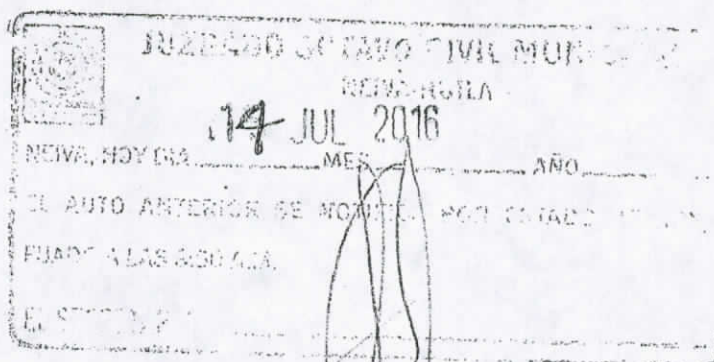 JUZGADO OCTAVO CIVIL MUNICIPAL
NEIVA-HUILA
14 JUL 2016
NEIVA, HOY DIA MES AÑO
EL AUTO ANTERIOR SE NOTIFICA POR ESTADO
FIJADO A LAS
EL